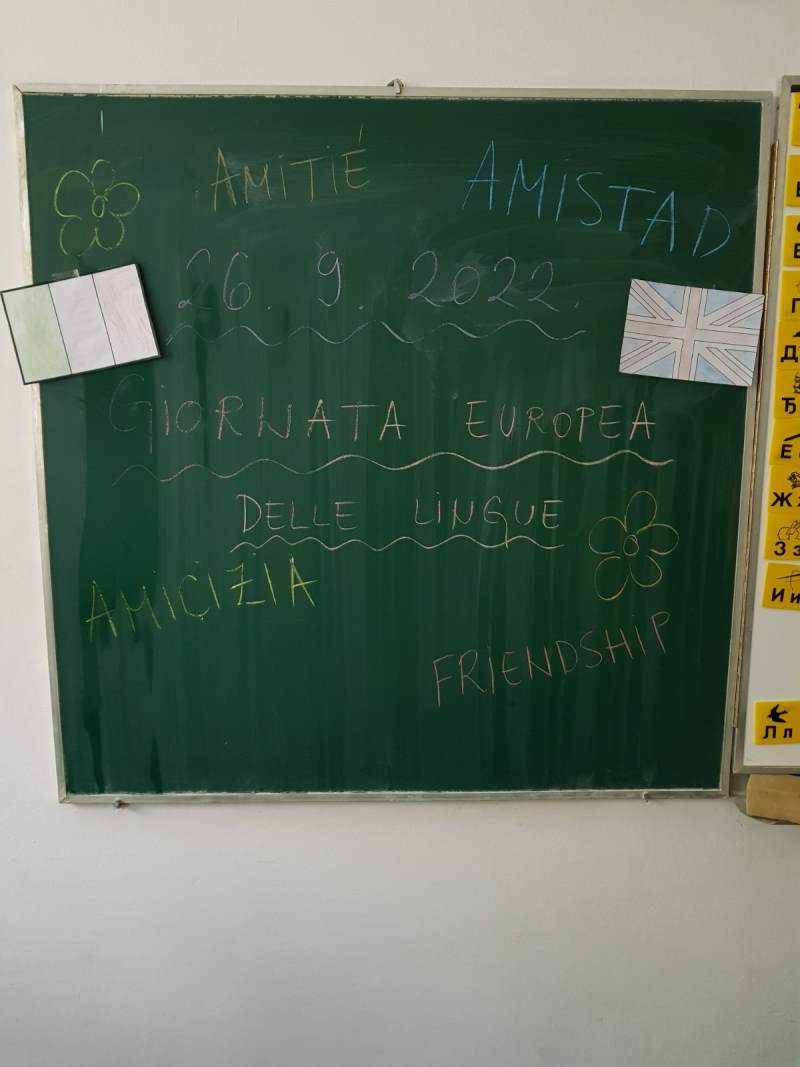 AMITIÉ AMISTAD
26. 9. 2022.
GIORNATA EUROPEA
DELLE LINGUE
AMICIZIA
FRIENDSHIP
Ђ
Ж
З з
И и
Л л